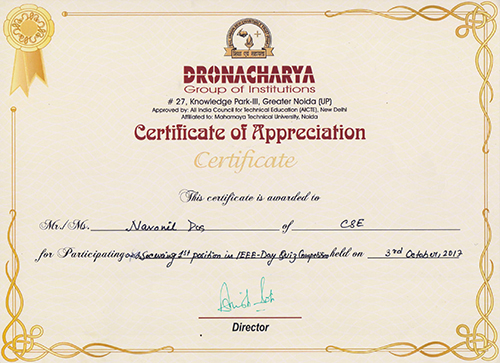 DRONACHARYA
Group of Institutions
# 27, Knowledge Park-III, Greater Noida (UP)
Approved by: All India Council for Technical Education (AICTE), New Delhi
Affiliated to: Mahamaya Technical University, Noida
Certificate of Appreciation
Certificate
This certificate is awarded to
Mr./Ms. Navonil Das of CSE
for Participating & Securing 1st position in IEEE-Day Quiz Competition held on 3rd October, 2017
Director